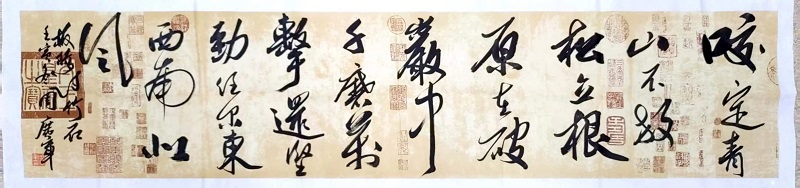 咬定青
山不放
松立根
原在破
巖中
千磨萬
擊還坚
勁任尔東
西南北
风
板橋诗竹石
壬寅